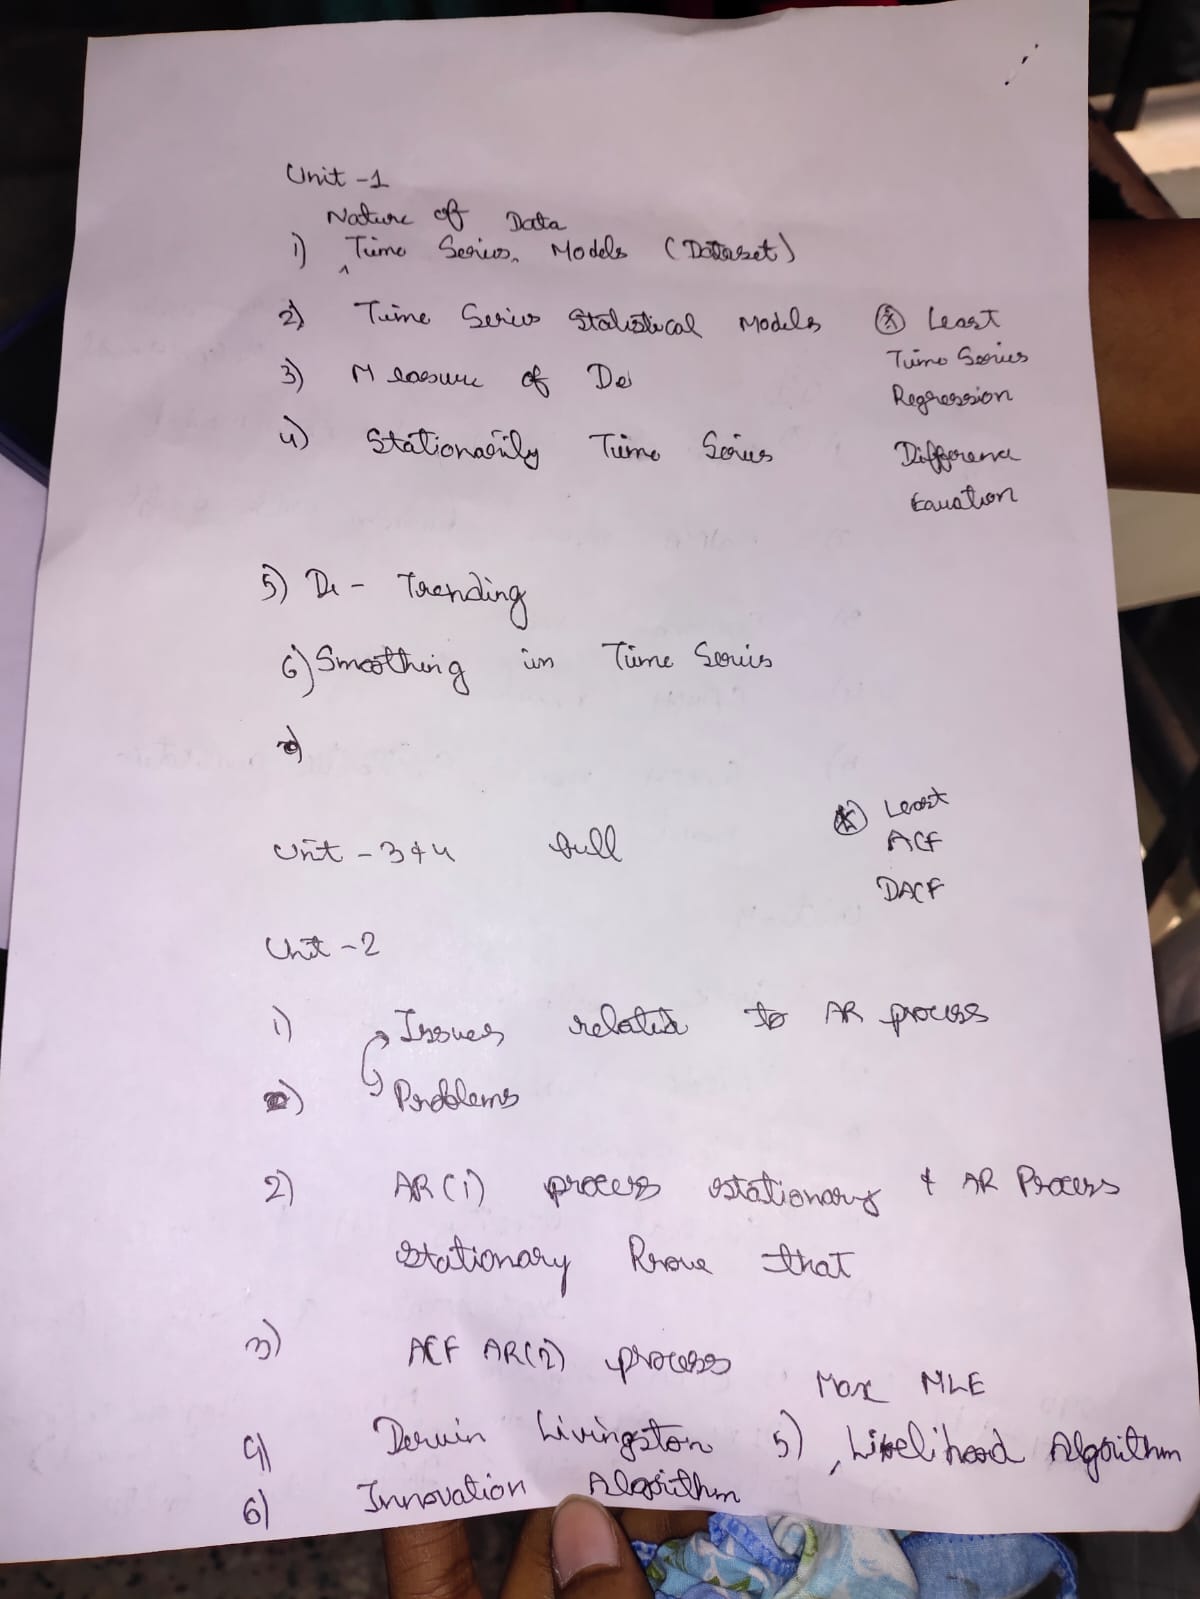 Unit -1
Nature of Data
1) ^ Time Series. Models (Dataset)
2) Time Series Statistical Models
3) Measure of De
4) Stationarily Time Series
* Least
Time Series
Regression
Difference
Equation
5) De - Trending
6) Smoothing in Time Series
Unit - 3 & 4 full
* Least
ACF
DACF
Unit -2
1) Issues related to AR process
Problems
2) AR(1) process stationary & AR Process
stationary Prove that
3) ACF AR(2) process
Max MLE
4) Derwin Livingston 5) Likelihood Algorithm
6) Innovation Algorithm